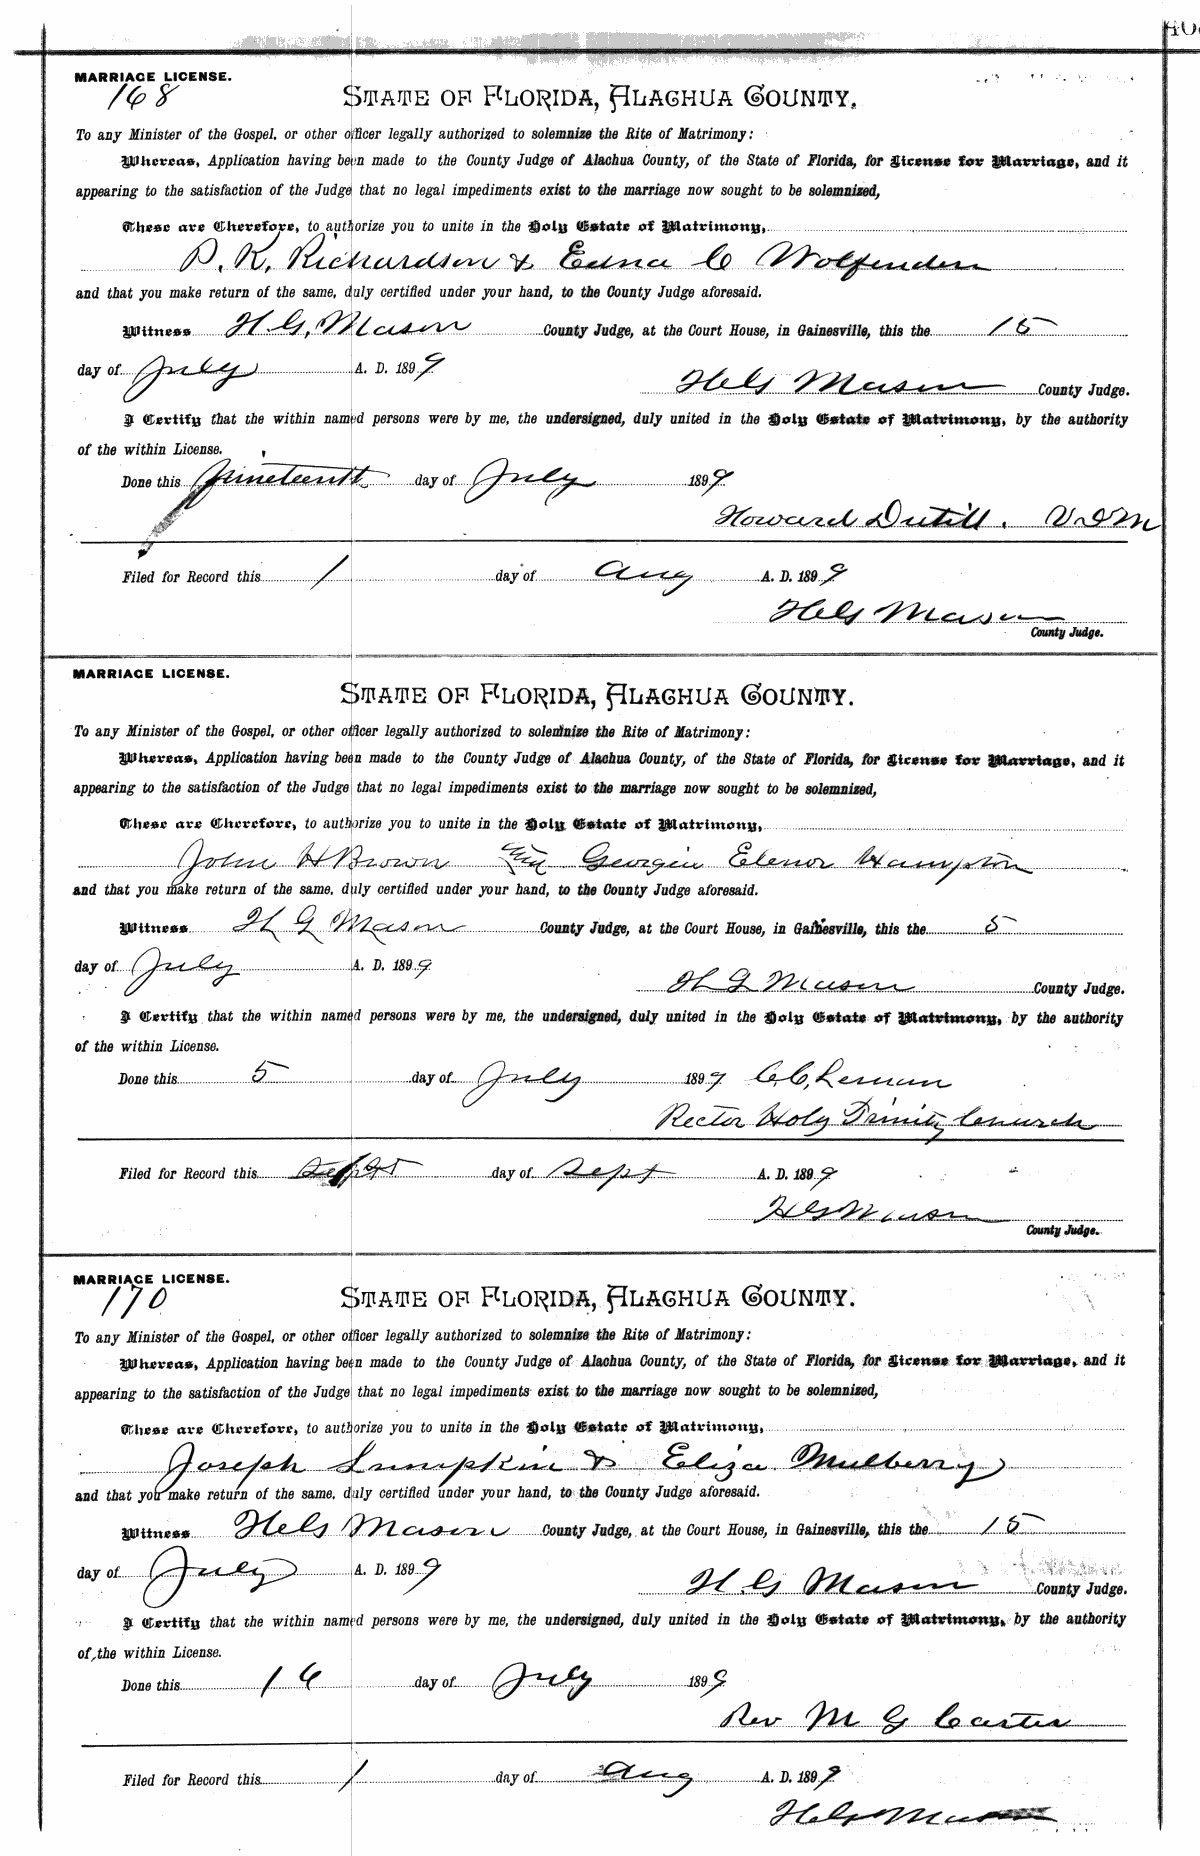 MARRIAGE LICENSE.
168
STATE OF FLORIDA, ALACHUA COUNTY.
To any Minister of the Gospel, or other officer legally authorized to solemnize the Rite of Matrimony:
Whereas, Application having been made to the County Judge of Alachua County, of the State of Florida, for License for Marriage, and it
appearing to the satisfaction of the Judge that no legal impediments exist to the marriage now sought to be solemnized,
These are Therefore, to authorize you to unite in the Holy Estate of Matrimony,
K. Richardson & Edna C Wolfenden
and that you make return of the same, duly certified under your hand, to the County Judge aforesaid.
Witness H. G. Mason County Judge, at the Court House, in Gainesville, this the 15
day of July A. D. 1899
H G Mason County Judge.
I Certify that the within named persons were by me, the undersigned, duly united in the Holy Estate of Matrimony, by the authority
of the within License.
Done this nineteenth day of July 1899
Howard Dutill. V D M
Filed for Record this 1 day of Aug A. D. 1899
H G Mason
County Judge.
MARRIAGE LICENSE.
STATE OF FLORIDA, ALACHUA COUNTY.
To any Minister of the Gospel, or other officer legally authorized to solemnize the Rite of Matrimony:
Whereas, Application having been made to the County Judge of Alachua County, of the State of Florida, for License for Marriage, and it
appearing to the satisfaction of the Judge that no legal impediments exist to the marriage now sought to be solemnized,
These are Therefore, to authorize you to unite in the Holy Estate of Matrimony,
John H Brown Georgia Elenor Hampton
and that you make return of the same, duly certified under your hand, to the County Judge aforesaid.
Witness H G Mason County Judge, at the Court House, in Gainesville, this the 5
day of July A. D. 1899
H G Mason County Judge.
I Certify that the within named persons were by me, the undersigned, duly united in the Holy Estate of Matrimony, by the authority
of the within License.
Done this 5 day of July 1899 C. C. Leman
Rector Holy Trinity Church
Filed for Record this day of Sept A. D. 1899
H G Mason
County Judge.
MARRIAGE LICENSE.
170
STATE OF FLORIDA, ALACHUA COUNTY.
To any Minister of the Gospel, or other officer legally authorized to solemnize the Rite of Matrimony:
Whereas, Application having been made to the County Judge of Alachua County, of the State of Florida, for License for Marriage, and it
appearing to the satisfaction of the Judge that no legal impediments exist to the marriage now sought to be solemnized,
These are Therefore, to authorize you to unite in the Holy Estate of Matrimony,
Joseph Lumpkin & Eliza Mulberry
and that you make return of the same, duly certified under your hand, to the County Judge aforesaid.
Witness H G Mason County Judge, at the Court House, in Gainesville, this the 15
day of July A. D. 1899
H. G Mason County Judge.
I Certify that the within named persons were by me, the undersigned, duly united in the Holy Estate of Matrimony, by the authority
of the within License.
Done this 16 day of July 1899
Rev M G Carter
Filed for Record this 1 day of Aug A. D. 1899
H G Mason